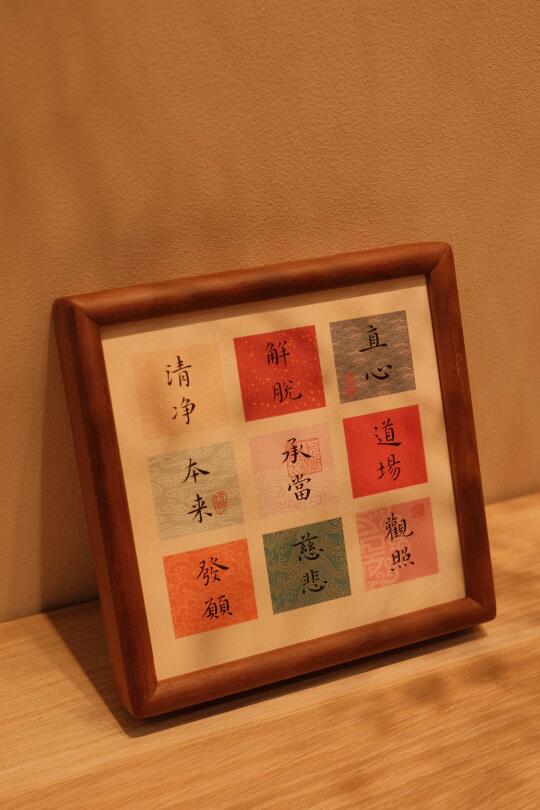 直心
道場
觀照
解脱
承當
慈悲
清净
本来
發願